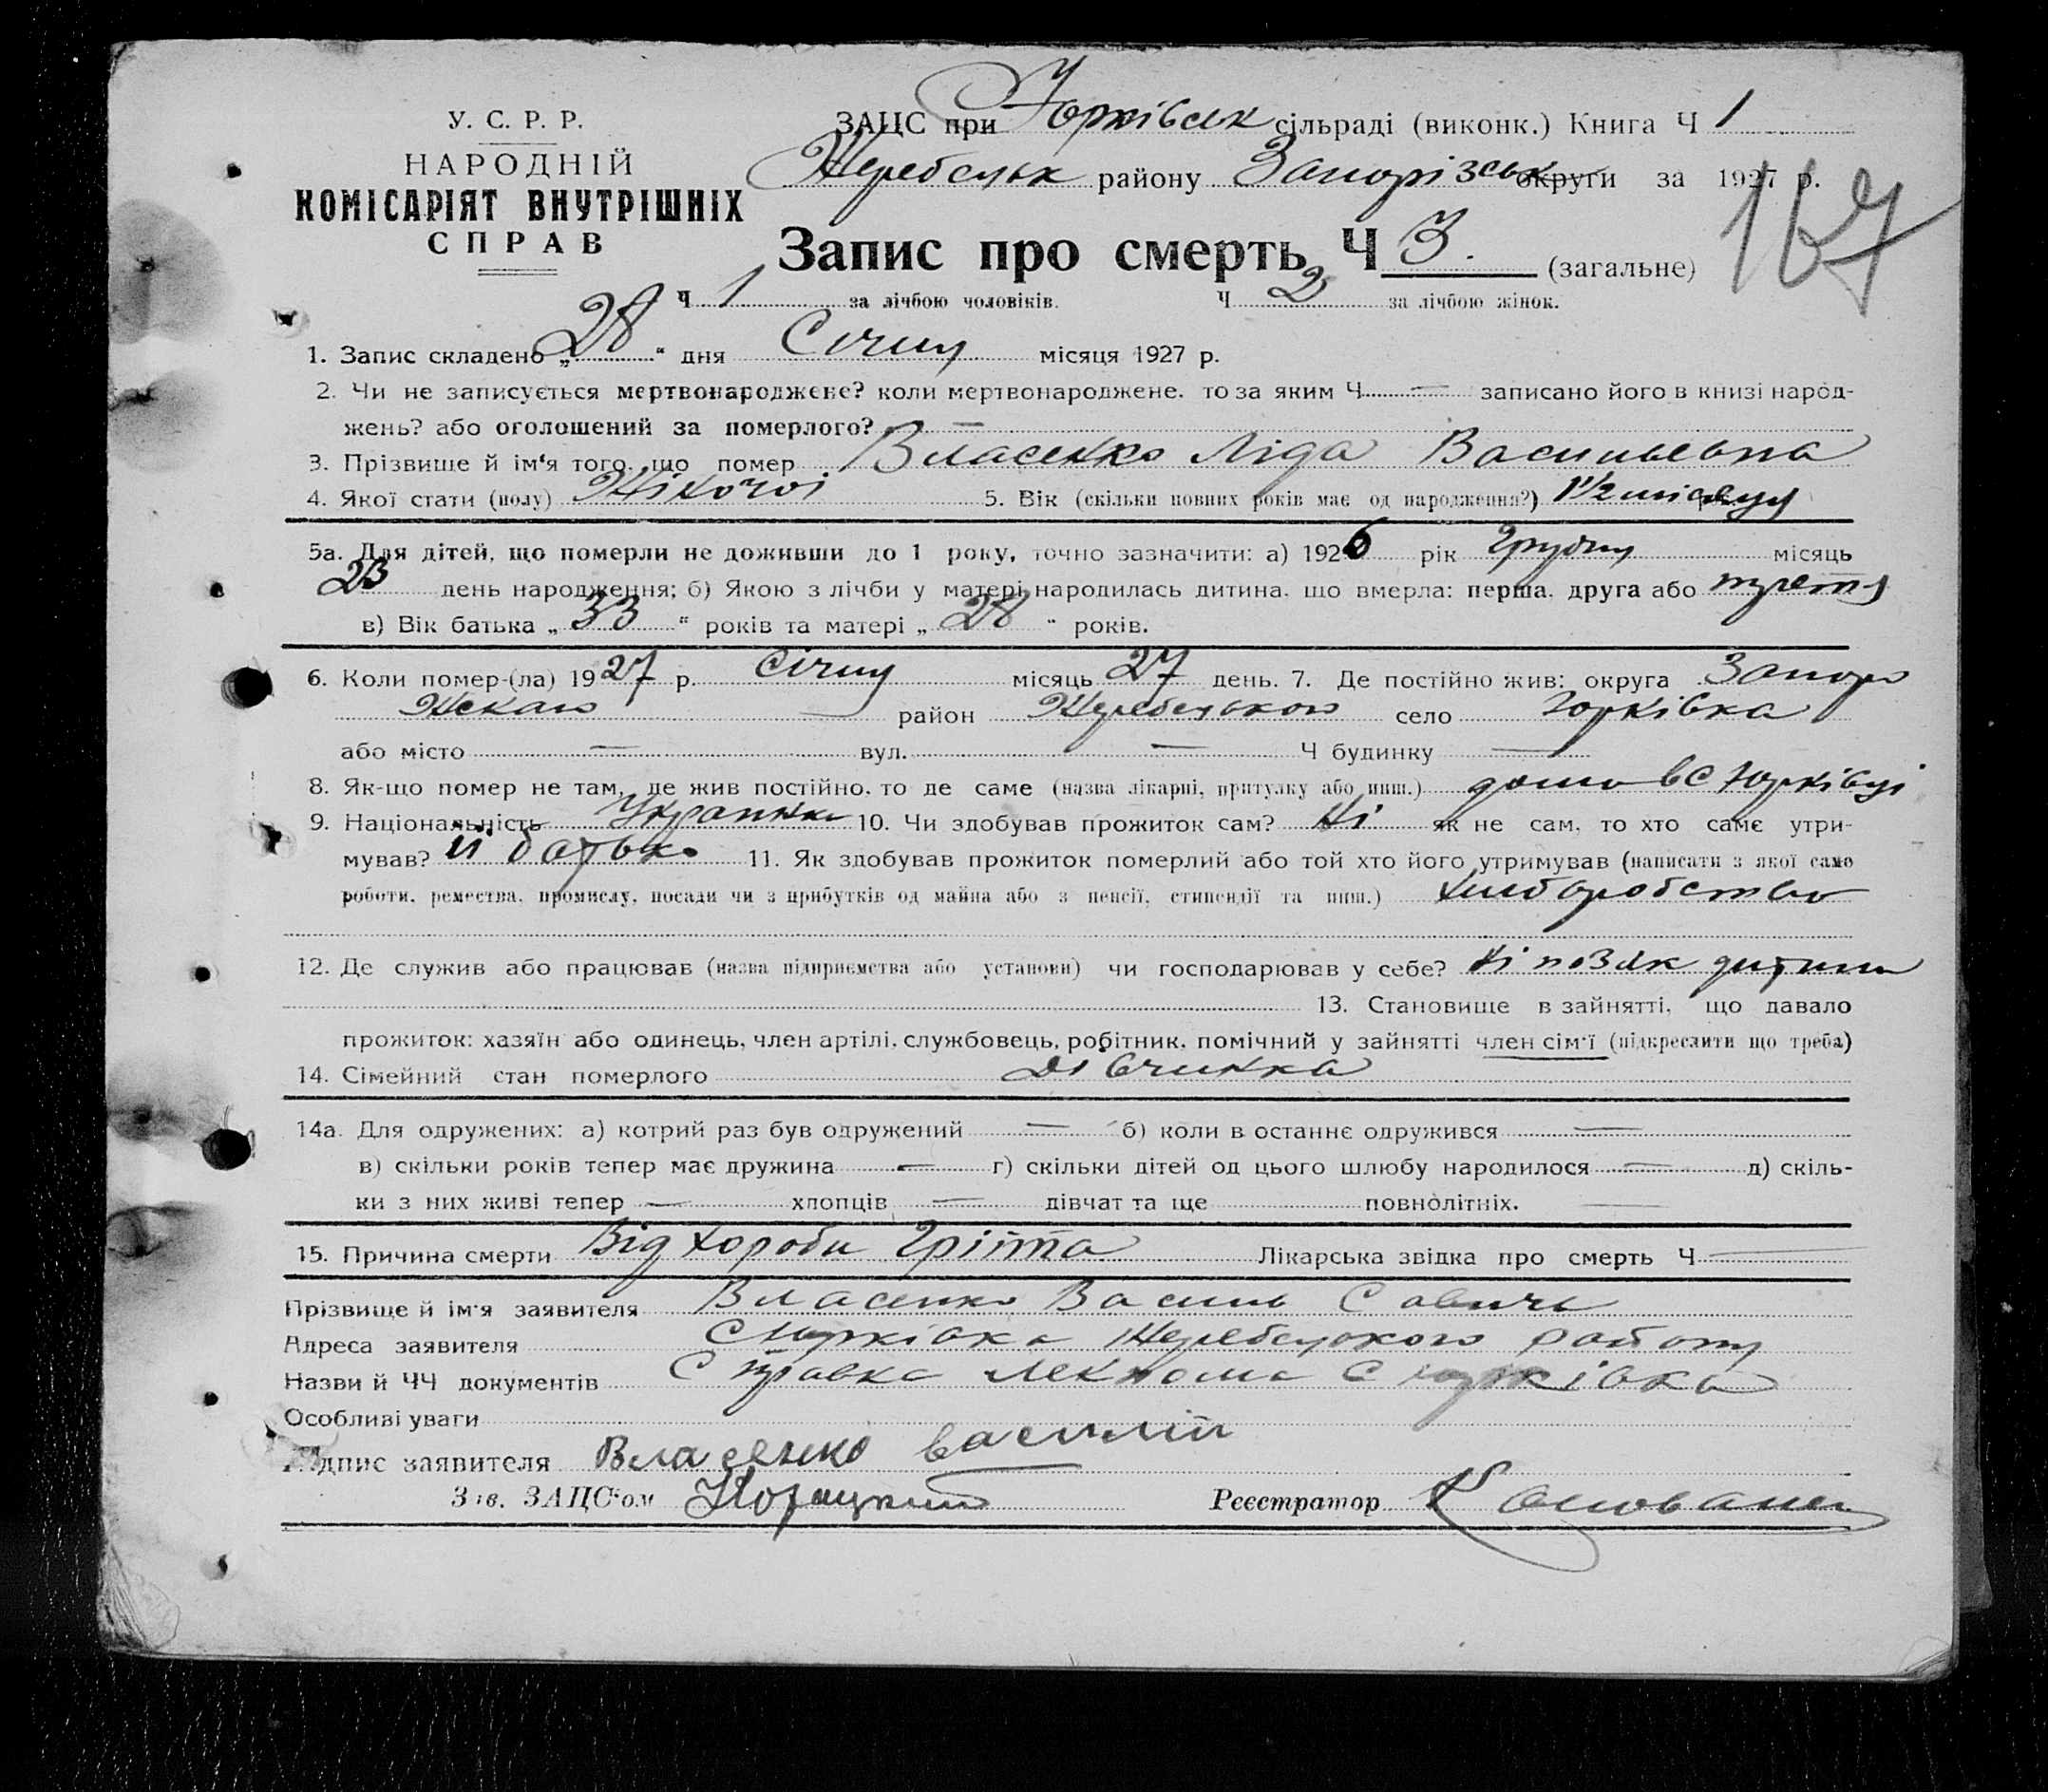 У. С. Р. Р.
НАРОДНІЙ
КОМІСАРІЯТ ВНУТРІШНІХ
СПРАВ
ЗАЦС при Юрківськ сільраді (виконк.) Книга Ч 1
Жеребецьк району Запорізськ округи за 1927 р.
167
Запис про смерть Ч 3. (загальне)
Ч 1 за лічбою чоловіків. Ч 2 за лічбою жінок.
1. Запис складено „28“ дня Січня місяця 1927 р.
2. Чи не записується мертвонароджене? коли мертвонароджене, то за яким Ч — записано його в книзі народ-
жень? або оголошений за померлого? —
3. Прізвище й ім'я того, що помер Власенко Ліда Васильевна
4. Якої стати (полу) Жіночої 5. Вік (скільки повних років має од народження?) 1 1/2 місяця
5а. Для дітей, що померли не доживши до 1 року, точно зазначити: а) 1926 рік Грудня місяць
23 день народження; б) Якою з лічби у матері народилась дитина, що вмерла: перша, друга або третя
в) Вік батька „33“ років та матері „28“ років.
6. Коли помер-(ла) 1927 р. Січня місяць 27 день. 7. Де постійно жив: округа Запоро
жскаго район Жеребецького село Юрківка
або місто — вул. — Ч будинку —
8. Як-що помер не там, де жив постійно, то де саме (назва лікарні, притулку або инш.) дома в С Юрківці
9. Національність Украінка 10. Чи здобував прожиток сам? Ні як не сам, то хто саме утри-
мував? її батько 11. Як здобував прожиток померлий або той хто його утримував (написати з якої само
роботи, ремества, промислу, посади чи з прибутків од майна або з пенсії, стипендії та инш.) хліборобство
12. Де служив або працював (назва підприємства або установи) чи господарював у себе? Ні позяк дитина
13. Становище в зайнятті, що давало
прожиток: хазяїн або одинець, член артілі, службовець, робітник, помічний у зайнятті член сім'ї (підкреслити що треба)
14. Сімейний стан померлого Дівчинка
14а. Для одружених: а) котрий раз був одружений — б) коли в останнє одружився —
в) скільки років тепер має дружина — г) скільки дітей од цього шлюбу народилося — д) скіль-
ки з них живі тепер — хлопців — дівчат та ще повнолітніх. —
15. Причина смерти Від хороби Гріппа Лікарська звідка про смерть Ч —
Прізвище й ім'я заявителя Власенко Василь Савичь
Адреса заявителя С Юрківка Жеребецького району
Назви й ЧЧ документів Справка лекпома С Юрківка
Особливі уваги
Підпис заявителя Власенко Василій
Зав. ЗАЦС'ом
Реєстратор